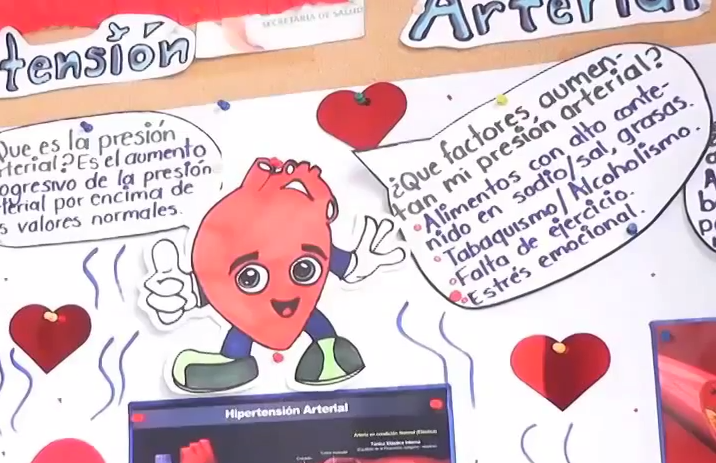 SECRETARÍA DE SALUD
tensión
Arterial
Que es la presión
rterial? Es el aumento
ogresivo de la presión
terial por encima de
s valores normales.
¿Que factores aumen-
tan mi presión arterial?
Alimentos con alto conte-
nido en sodio/sal, grasas.
Tabaquismo/Alcoholismo.
Falta de ejercicio.
Estrés emocional.
Hipertensión Arterial
Arteria en condición Normal (Elástica)
Túnica Elástica Interna